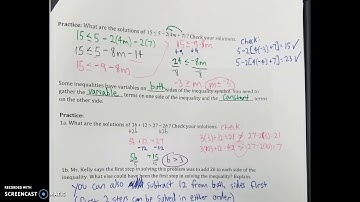 Practice: What are the solutions of 15 ≤ 5 - 2(4m + 7)? Check your solutions.
15 ≤ 5 - 2(4m) - 2(7)
15 ≤ 5 - 8m - 14
15 ≤ -9 - 8m
15 ≤ -9 - 8m
+9 +9
24 ≤ -8m
-3 ≥ m
m ≤ -3
check:
5-2[4(-3)+7] = 15 ✓
5-2[4(-4)+7] = 23 ✓
Some inequalities have variables on both sides of the inequality symbol. You need to
gather the variable terms on one side of the inequality and the constant terms
on the other side.
Practice:
1a. What are the solutions of 3b + 12 > 27 - 2b? Check your solutions.
+2b +2b
5b + 12 > 27
-12 -12
5b > 15
5 5
b > 3
check
1b. Mr. Kelly says the first step in solving this problem was to add 2b to each side of the
inequality. What else could have been the first step in solving the inequality? Explain.
you can also subtract 12 from both sides first
(first 2 steps can be solved in either order)
RECORDED WITH
SCREENCAST